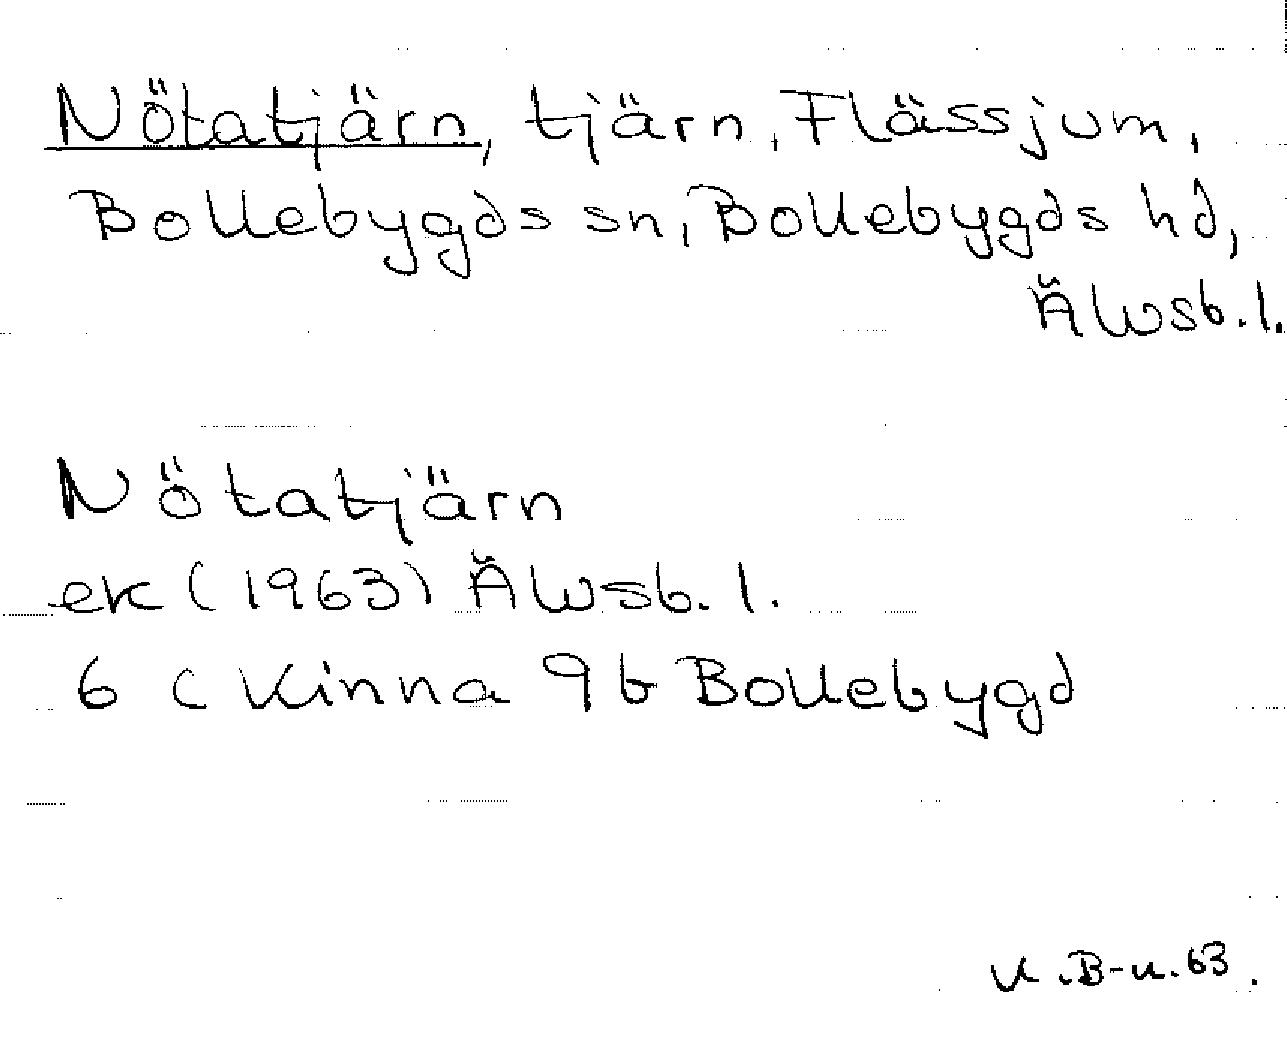 Nötatjärn, tjärn, Flässjum,
Bollebygds sn, Bollebygds hd,
Älvsb. l.
Nötatjärn
ek (1963) Älvsb. l.
6 C Kinna 9b Bollebygd
K.B-n.63.